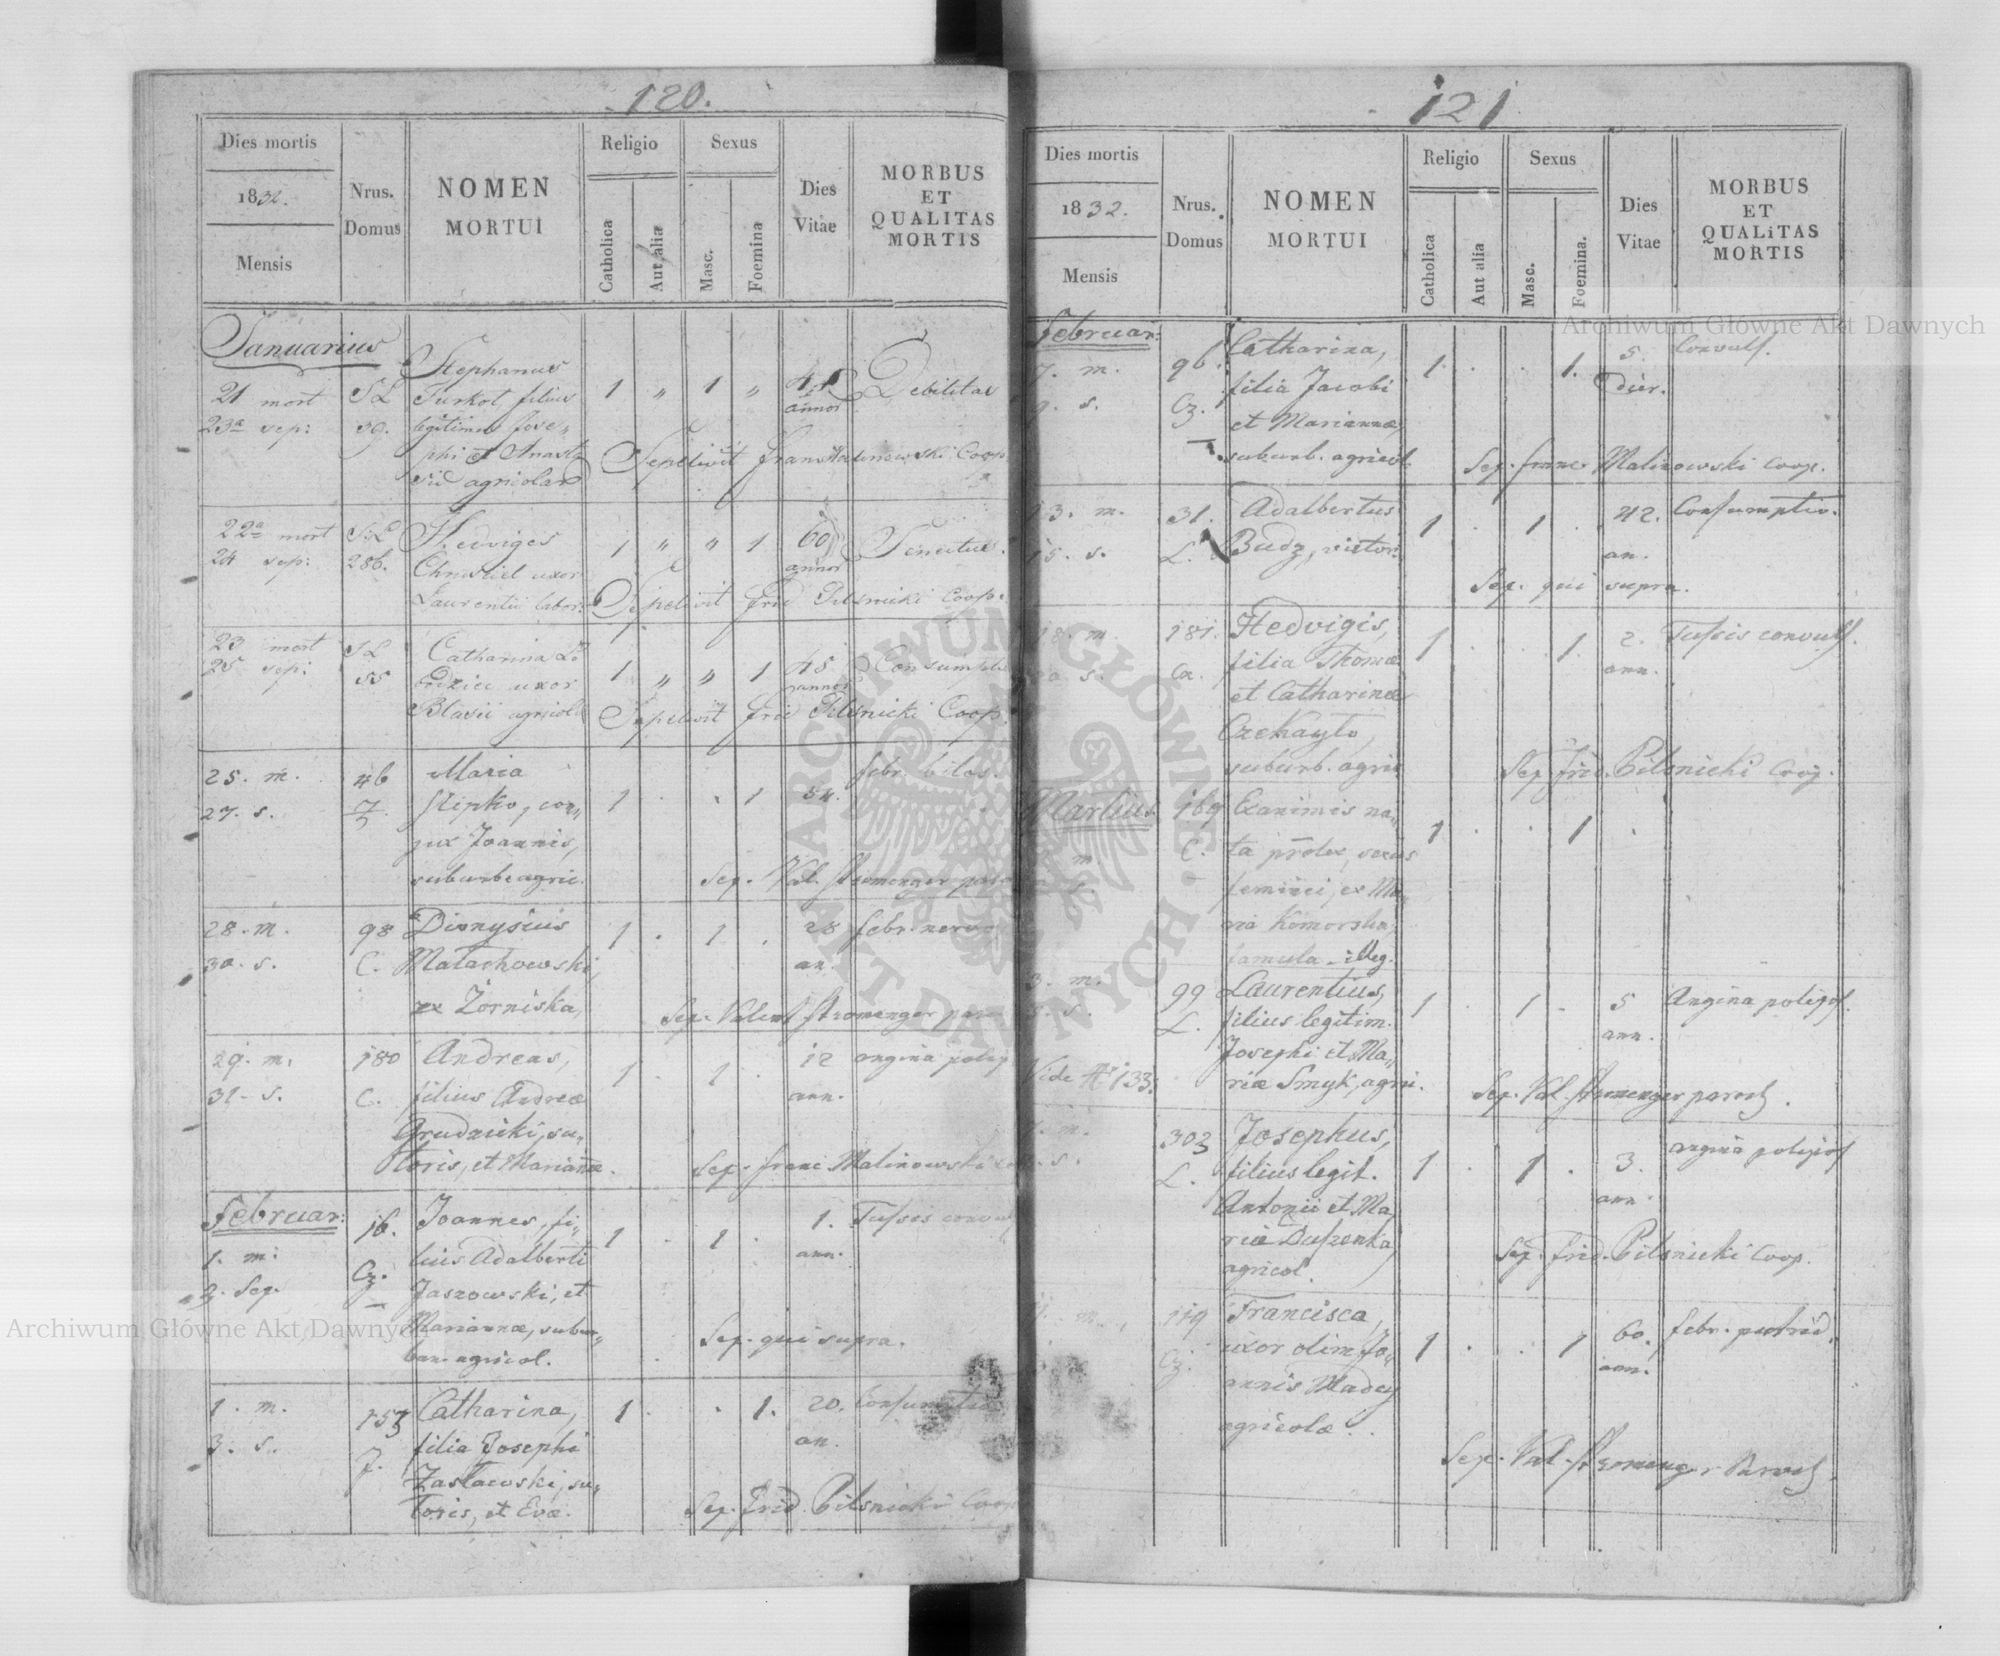 120.
Dies mortis
1832.
Mensis
Nrus.
Domus
NOMEN
MORTUI
Religio
Catholica
Aut alia
Sexus
Masc.
Foemina
Dies
Vitae
MORBUS
ET
QUALITAS
MORTIS
Januarius
21 mort
23a sep:
SL
39.
Stephanus
Turkot filius
legitimus Jose„
phi et Anasta
sid agricolar
1 „ 1 „
annor
Debilitas
Sepelivit Franc Malinowski Coop
22a mort
24 sep:
S:L
286.
Hedviges
Chmiel uxor
Laurentii labor:
1 „ „ 1
60
annor
Senectus.
Sepelivit Frid Pilsnicki Coop:
23 mort
25 sep:
SL
55
Catharina
uxor
Blasii agricola
1 „ „ 1
45
annor
Consumptio
Sepelivit Frid Pilsnicki Coop.
25. m.
27. s.
46
Maria
Stipko, con„
jux Joannis,
suburb agric.
1 . . 1
54.
febr. bilos.
Sep. Val. Stromenger paro
28. m.
30. s.
98
C.
Dionysius
Małachowski,
ex Żorniska,
1 . 1 .
28
an.
febr. nerv
Sep. Valent Stromenger par
29. m.
31. s.
180
C.
Andreas,
filius Andreæ
Grudnicki, su„
toris, et Mariannæ.
1 . 1 .
12
ann.
angina polip
Sep. Franc Malinowski
Februar:
1. m.
3. Sep.
16.
Cz.
Joannes, fi„
lius Adalberti
Jaszowski, et
Mariannæ, subur„
ban. agricol.
1 . 1 .
1.
ann.
Tussis convul
Sep. qui supra.
1. m.
3. s.
153
J.
Catharina,
filia Josephi
Zasławski, su„
toris, et Evæ.
1 . . 1.
20.
an.
Consumptio
Sep. Frid. Pilsnicki Coop
121
Dies mortis
1832.
Mensis
Nrus.
Domus
NOMEN
MORTUI
Religio
Catholica
Aut alia
Sexus
Masc.
Foemina.
Dies
Vitae
MORBUS
ET
QUALiTAS
MORTIS
Februar:
7. m.
9. s.
96.
Cz.
Catharina,
filia Jacobi
et Mariannæ,
suburb. agricol.
1. . . 1.
5.
dier.
Convuls.
Sep. Franc Malinowski Coop.
13. m.
15. s.
31.
L.
Adalbertus
Budz, victor.
1 . 1 .
42.
an.
Consumptio.
Sep. qui supra.
18. m.
20 s.
181.
Hedvigis,
filia Thomæ
et Catharinæ
Czekayło,
suburb. agric
1 . . 1.
2.
ann.
Tussis convuls.
Sep. Frid. Pilsnicki Coop.
Martius.
m.
169
C.
Exanimis na„
ta proles, sexus
feminei, ex Ma„
ria Komorska,
famula - illeg.
1 . . 1
3. m.
5. s.
Vide № 133.
99
L.
Laurentius,
filius legitim.
Josephi et Ma„
riæ Smyk, agri.
1 . 1 .
5
ann.
Angina polipos.
Sep. Val. Stromenger paroch.
m.
s.
303
L.
Josephus,
filius legit.
Antonii et Ma„
riæ Duszenka,
agricol.
1 . 1 .
3.
ann.
angina polipos
Sep. Frid. Pilsnicki Coop.
m.
119
Cz.
Francisca,
uxor olim Jo„
annis Madey
agricolæ.
1 . . 1
60.
ann.
febr. putrid.
Sep. Val. Stromenger Paroch.
Archiwum Główne Akt Dawnych
Archiwum Główne Akt Dawnych
ARCHIWUM GŁÓWNE AKT DAWNYCH